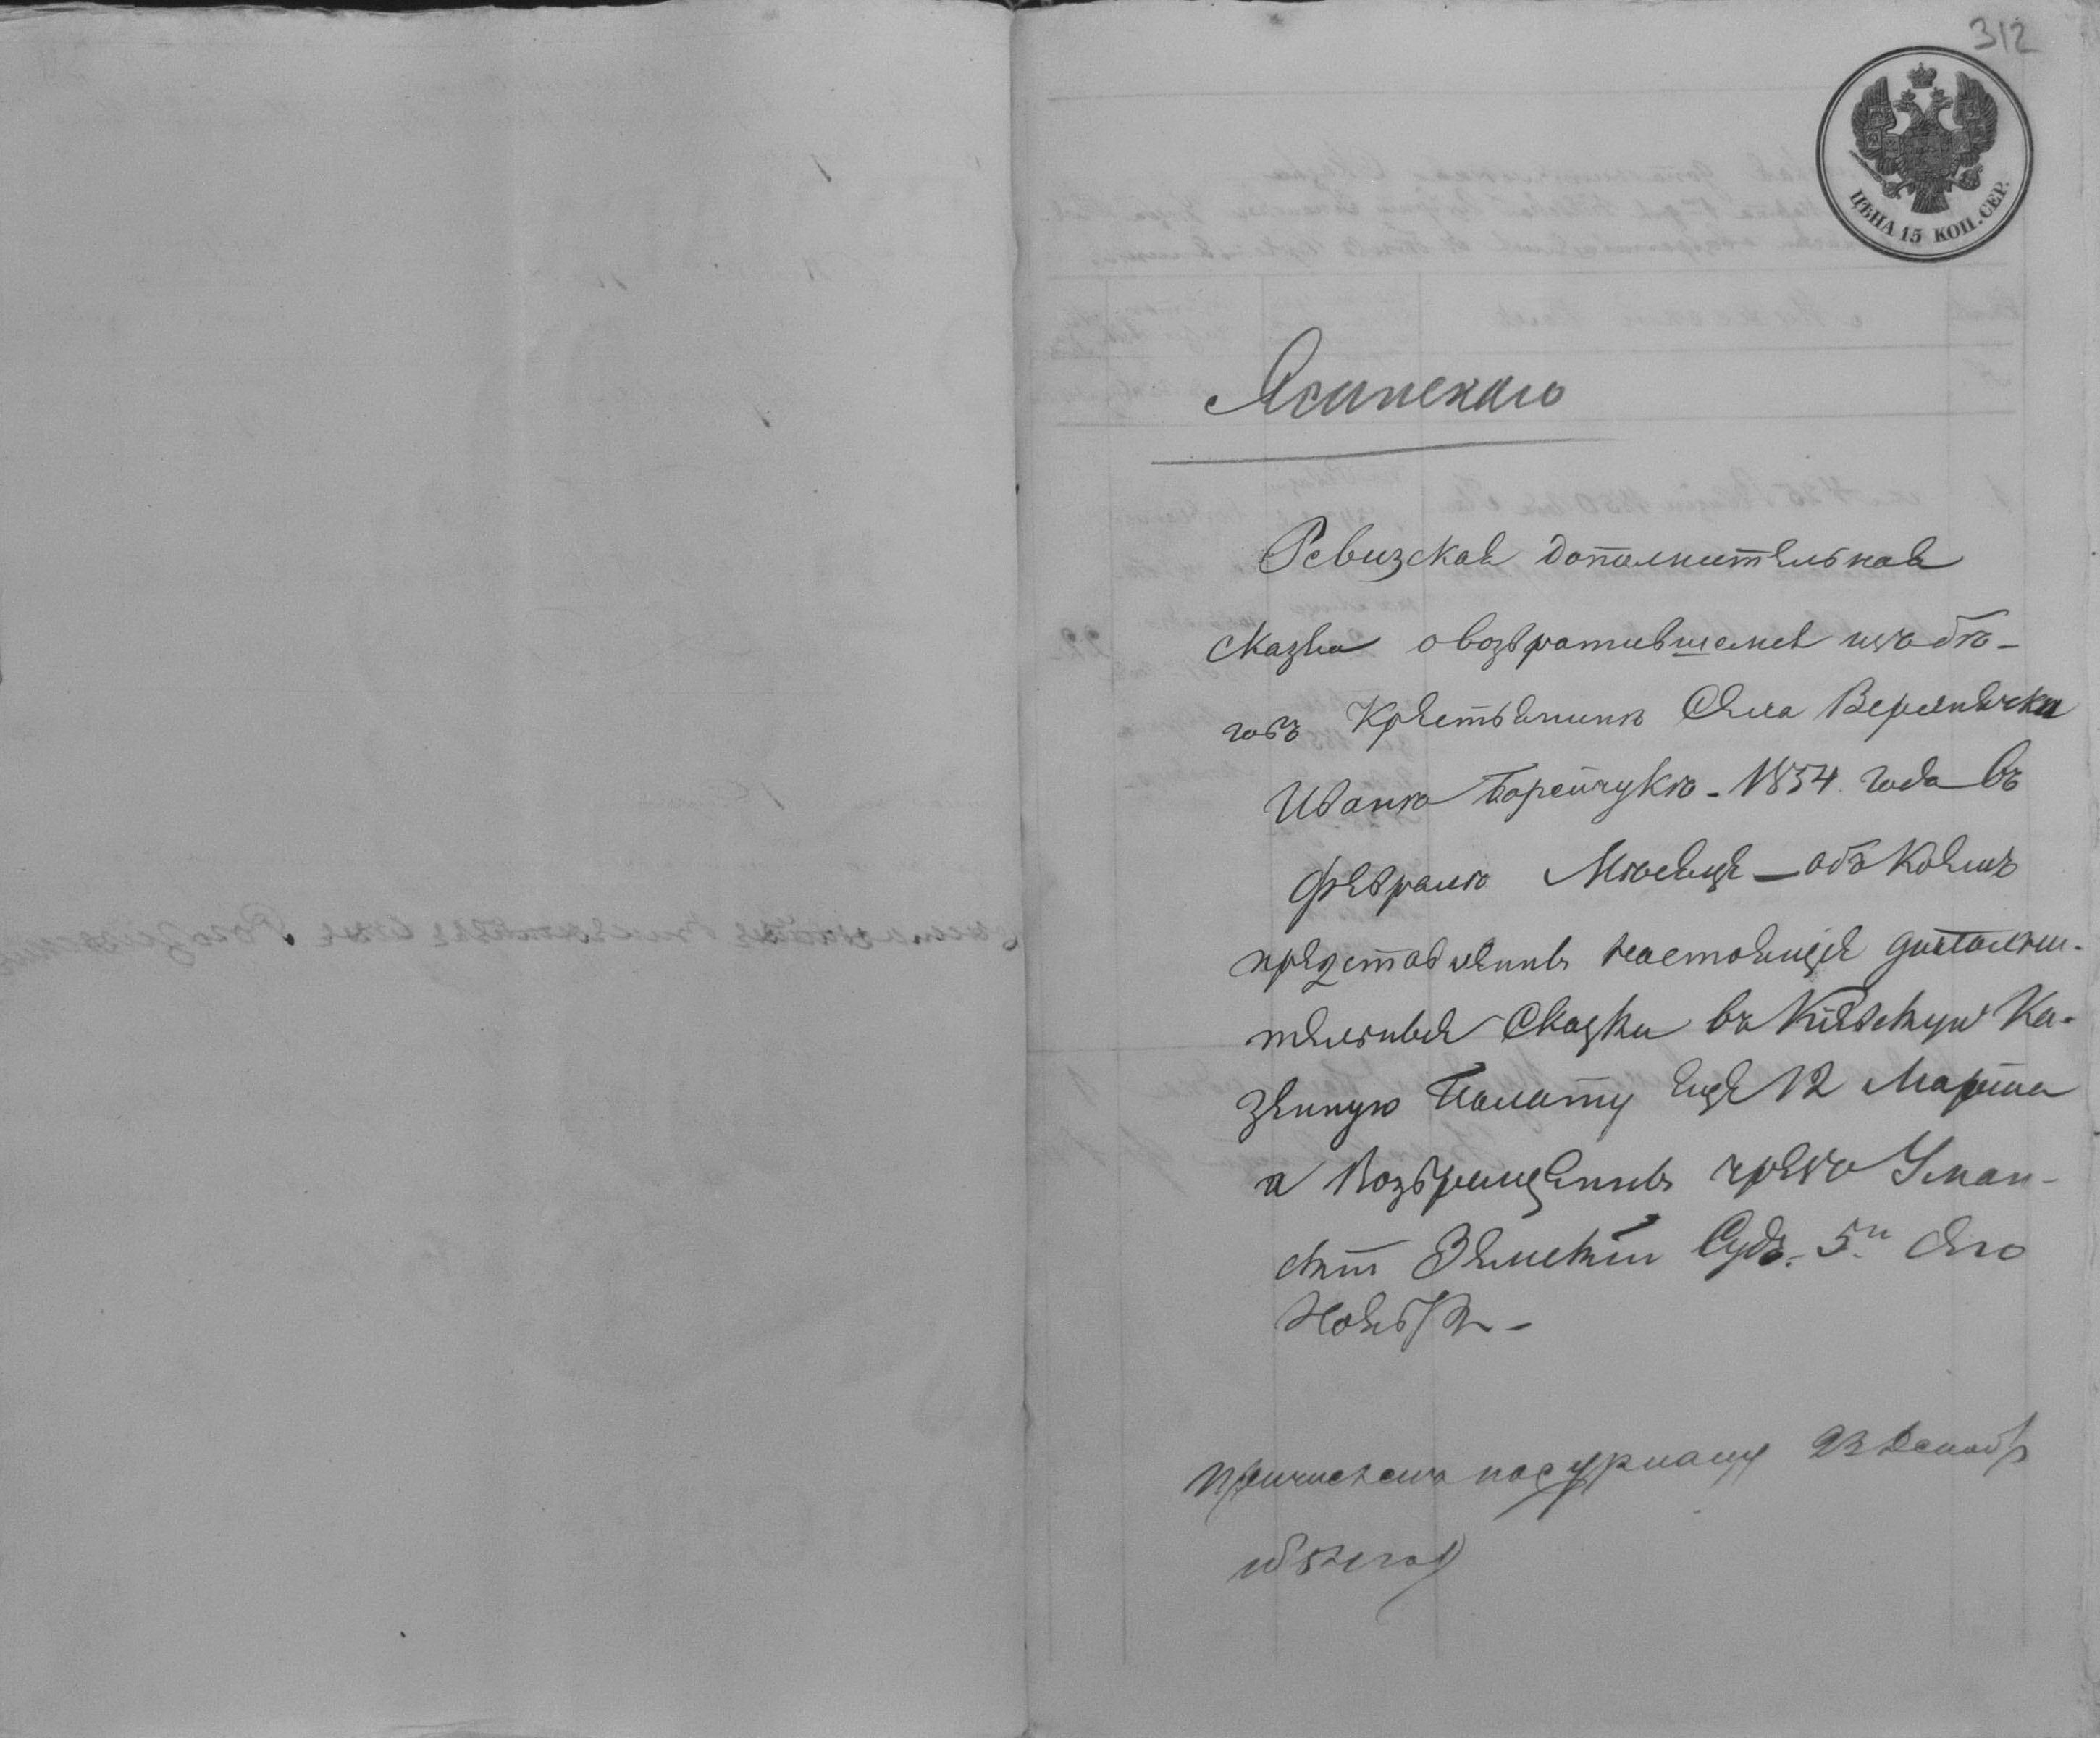 312
ЦѢНА 15 КОП. СЕР.
Ясинскаго
Ревизская дополнительная
сказка о возвратившемся изъ бѣ-
говъ Крестьянинѣ Села Верхнячки
Иванѣ 1854 года въ
Февралѣ Мѣсяцѣ — объ коемъ
представлены настоящіе дополни-
тельные Сказки въ Кіевскую Ка-
зенную Палату еще 12 Марта
а Возвращены чрезъ Уман-
скій Земскій Судъ. 5го Сего
Ноября —
причисленъ по журналу 23 Декабр